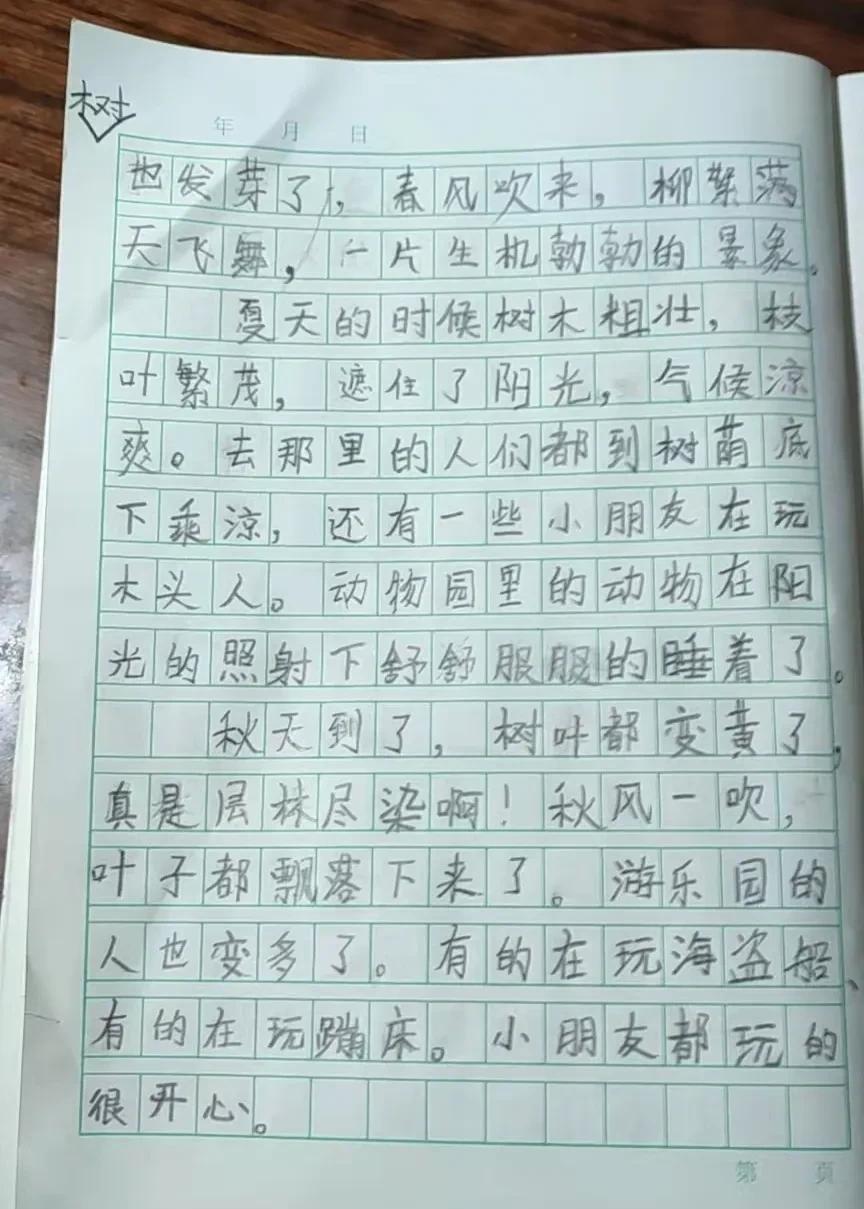 树
年 月 日
也发芽了,春风吹来,柳絮满
天飞舞,一片生机勃勃的景象。
夏天的时候树木粗壮,枝
叶繁茂,遮住了阳光,气候凉
爽。去那里的人们都到树荫底
下乘凉,还有一些小朋友在玩
木头人。动物园里的动物在阳
光的照射下舒舒服服的睡着了。
秋天到了,树叶都变黄了,
真是层林尽染啊!秋风一吹,
叶子都飘落下来了。游乐园的
人也变多了。有的在玩海盗船、
有的在玩蹦床。小朋友都玩的
很开心。
第 页